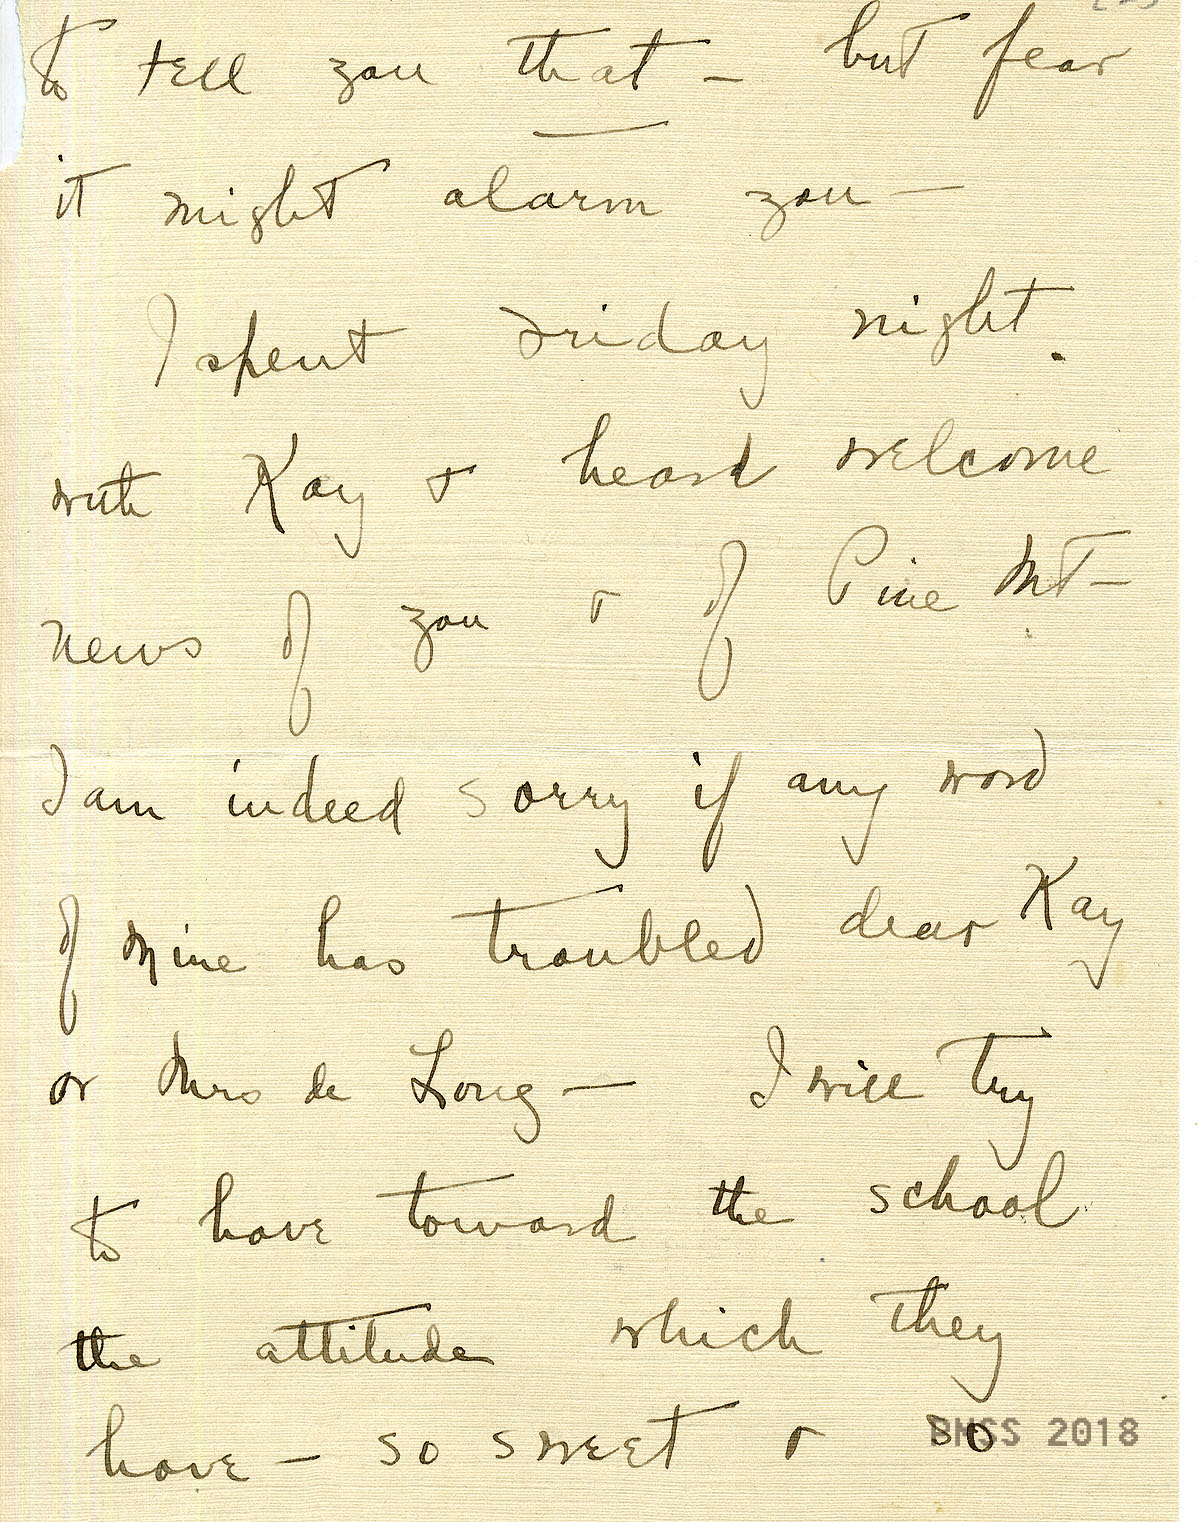 to tell you that – but fear
it might alarm you –
I spent Friday night.
with Kay & heard welcome
news of you & of Pine Mt –
I am indeed sorry if any word
of mine has troubled dear Kay
or Mrs de Long – I will try
to have toward the school
the attitude which they
have – so sweet & so
PMSS 2018